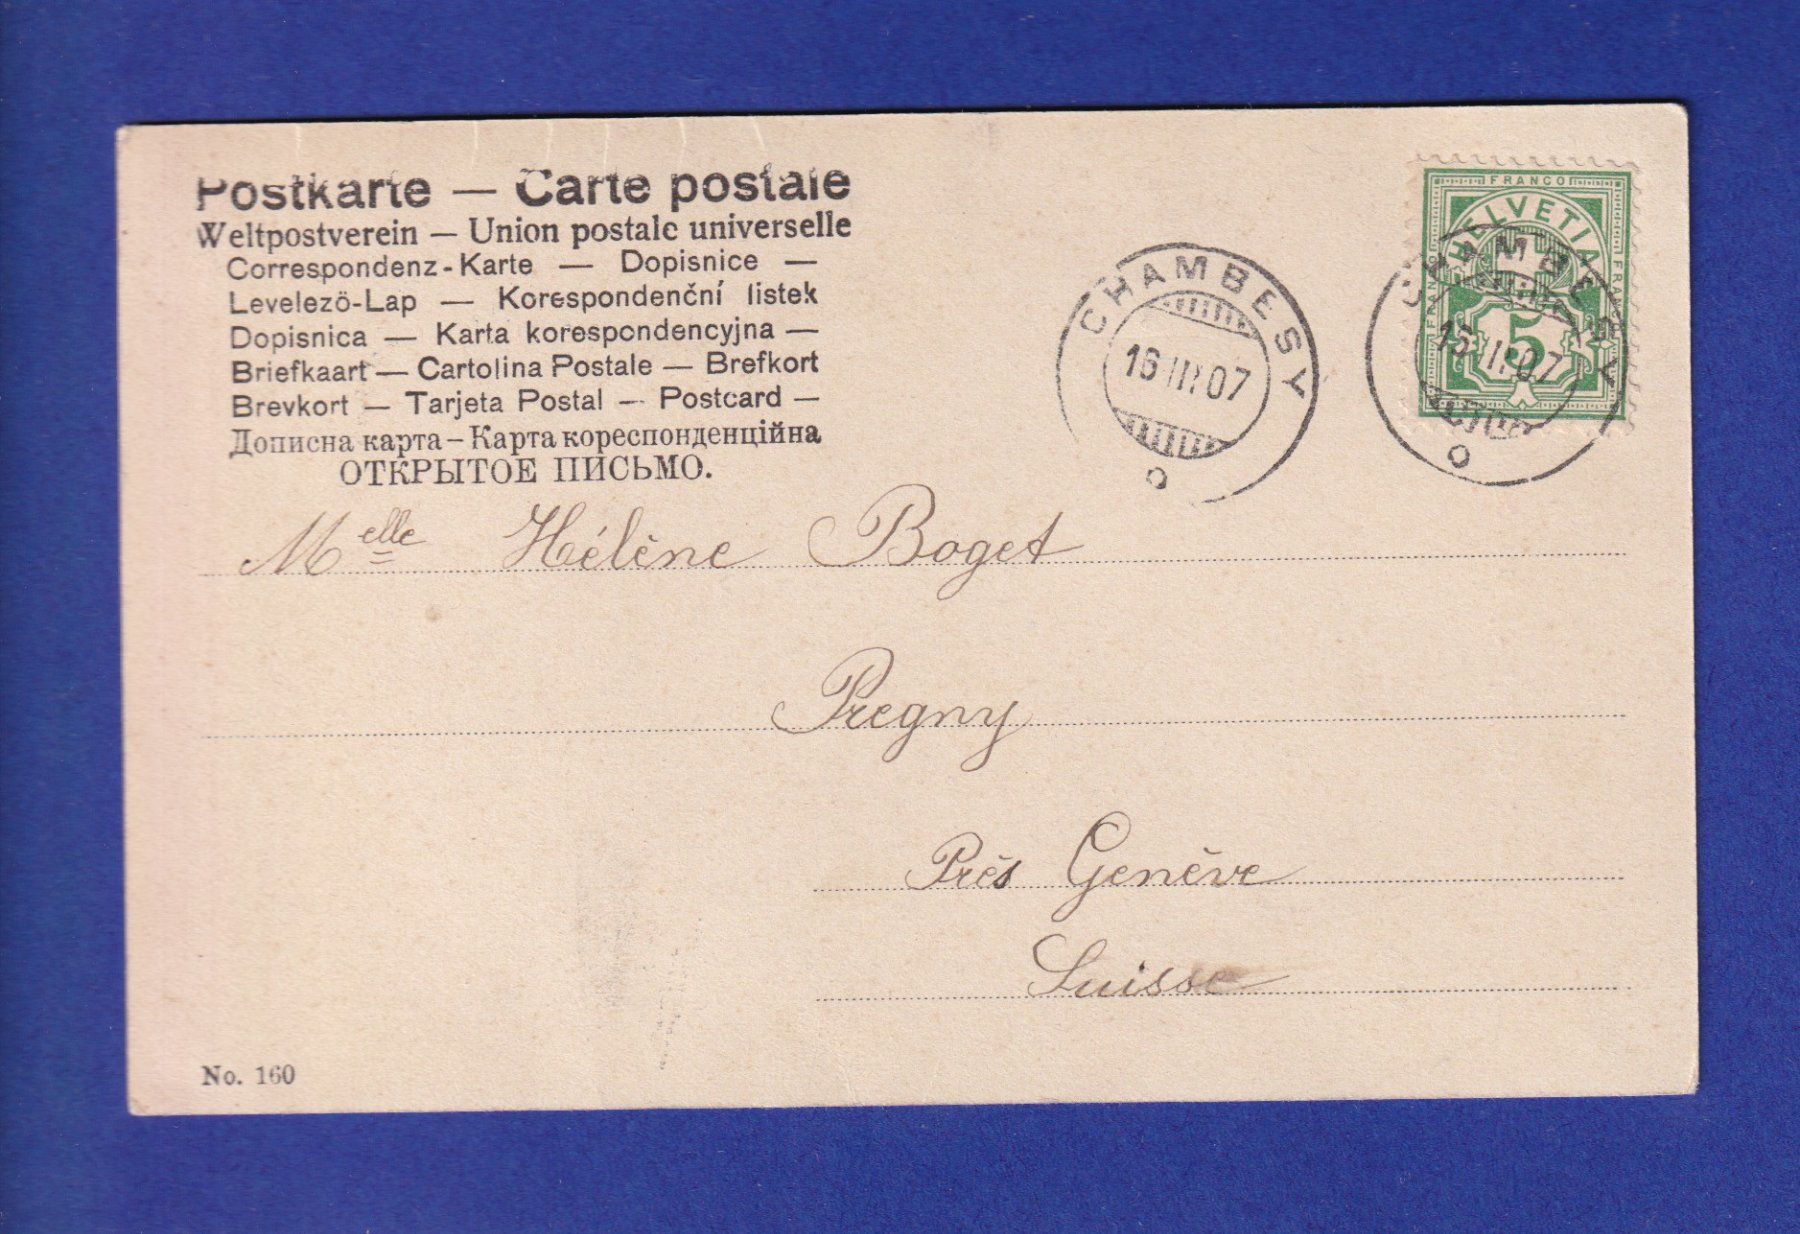 Postkarte — Carte postale
Weltpostverein — Union postale universelle
Correspondenz-Karte — Dopisnice —
Levelező-Lap — Korespondenční listek
Dopisnica — Karta korespondencyjna —
Briefkaart — Cartolina Postale — Brefkort
Brevkort — Tarjeta Postal — Postcard —
Дописна карта – Карта кореспонденційна
ОТКРЫТОЕ ПИСЬМО.
CHAMBESY
16 III 07
FRANCO
HELVETIA
5
CHAMBESY
16 III 07
Melle Hélène Boget
Pregny
Près Genève
Suisse
No. 160